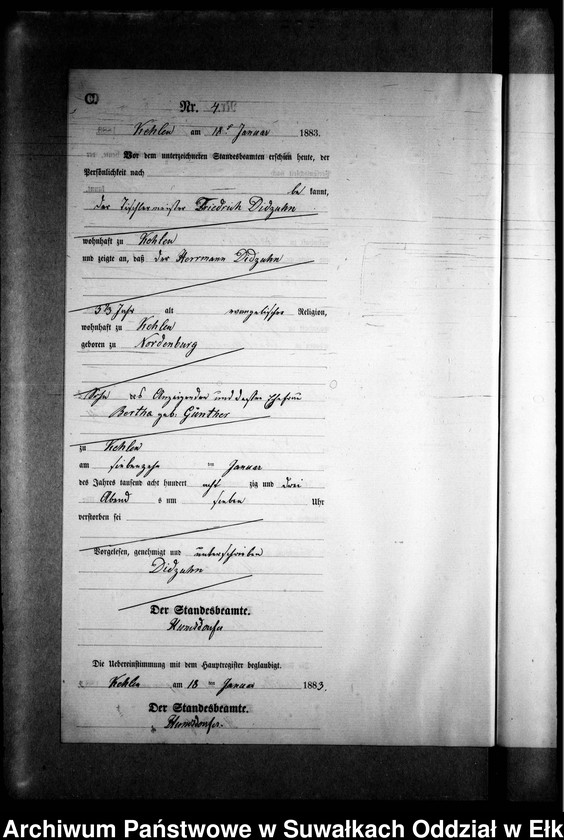 C)
Nr. 4.
Kehlen am 18ᵗ Januar 1883.
Vor dem unterzeichneten Standesbeamten erschien heute, der
Persönlichkeit nach
be kannt,
der Tischlermeister Friedrich Didzuhn
wohnhaft zu Kehlen
und zeigte an, daß der Herrmann Didzuhn
Jahr alt evangelischer Religion,
wohnhaft zu Kehlen
geboren zu Nordenburg
Sohn des Anzeigenden und dessen Ehefrau
Bertha geb: Günther
zu Kehlen
am siebenzehn ten Januar
des Jahres tausend acht hundert acht zig und drei
Abend s um sieben Uhr
verstorben sei
Vorgelesen, genehmigt und unterschrieben
Didzuhn
Der Standesbeamte.
Die Uebereinstimmung mit dem Hauptregister beglaubigt.
Kehlen am 18 ten Januar 1883.
Der Standesbeamte.
Archiwum Państwowe w Suwałkach Oddział w Ełk